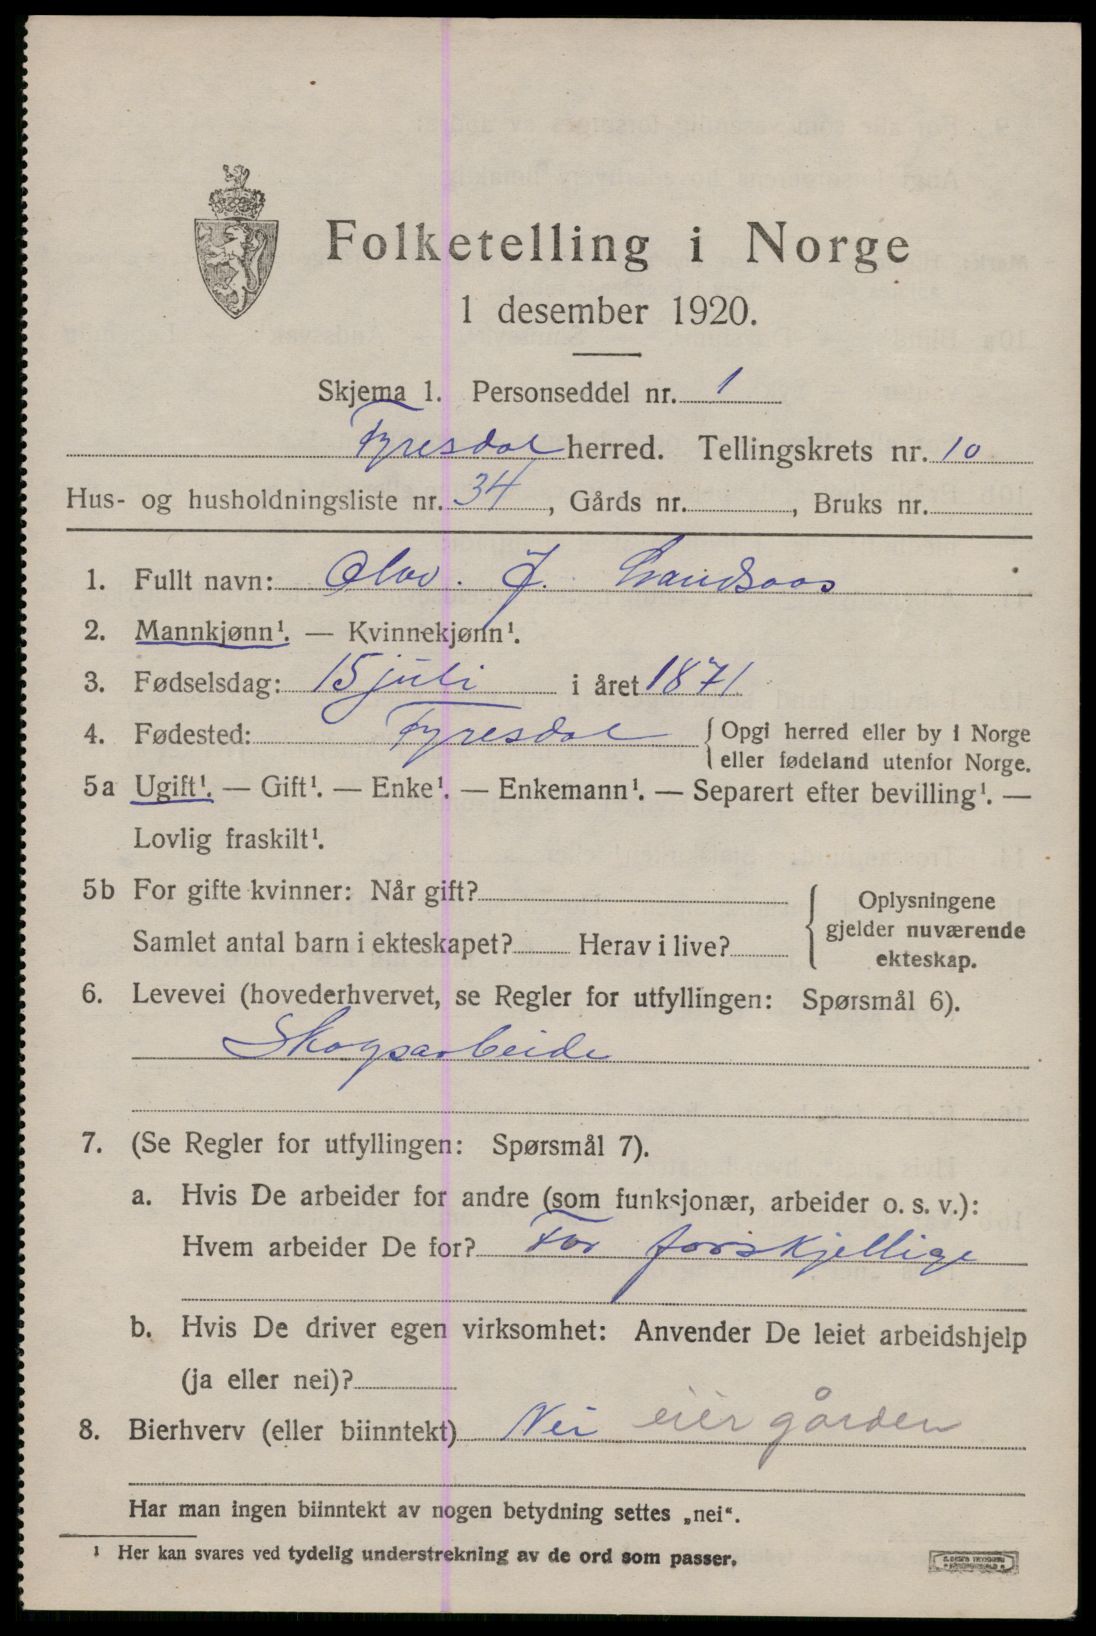 Folketelling i Norge
1 desember 1920.
Skjema 1. Personseddel nr. 1
Fyresdal herred. Tellingskrets nr. 10
Hus- og husholdningsliste nr. 34, Gårds nr. , Bruks nr.
1. Fullt navn: Olav. J.
2. Mannkjønn¹. — Kvinnekjønn¹.
3. Fødselsdag: 15 juli i året 1871
4. Fødested: Fyresdal { Opgi herred eller by i Norge
eller fødeland utenfor Norge.
5a Ugift¹. — Gift¹. — Enke¹. — Enkemann¹. — Separert efter bevilling¹. —
Lovlig fraskilt¹.
5b For gifte kvinner: Når gift?
Samlet antal barn i ekteskapet? Herav i live?
{ Oplysningene
gjelder nuværende
ekteskap.
6. Levevei (hovederhvervet, se Regler for utfyllingen: Spørsmål 6).
Skogsarbeide
7. (Se Regler for utfyllingen: Spørsmål 7).
a. Hvis De arbeider for andre (som funksjonær, arbeider o. s. v.):
Hvem arbeider De for? For forskjellige
b. Hvis De driver egen virksomhet: Anvender De leiet arbeidshjelp
(ja eller nei)?
8. Bierhverv (eller biinntekt) Nei eier gården
Har man ingen biinntekt av nogen betydning settes „nei“.
¹ Her kan svares ved tydelig understrekning av de ord som passer.